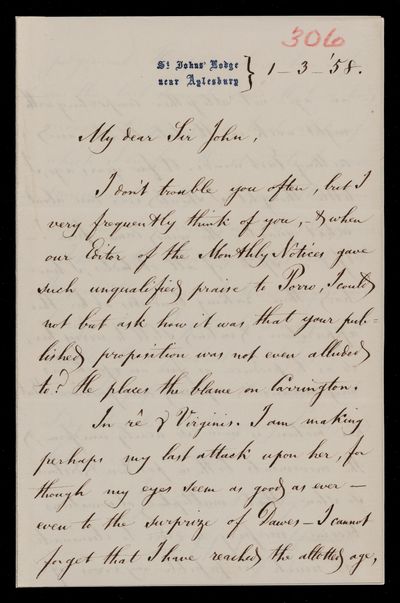 306
St Johns' Lodge
near Aylesbury } 1–3–'58.
My dear Sir John,
I don't trouble you often, but I
very frequently think of you, – & when
our Editor of the Monthly Notices gave
such unqualified praise to Porro, I could
not but ask how it was that your pub=
lished proposition was not even alluded
to? He places the blame on Carrington.
In rê γ Virginis. I am making
perhaps my last attack upon her, for
though my eyes seem as good as ever –
even to the surprize of Dawes – I cannot
forget that I have reached the allotted age,